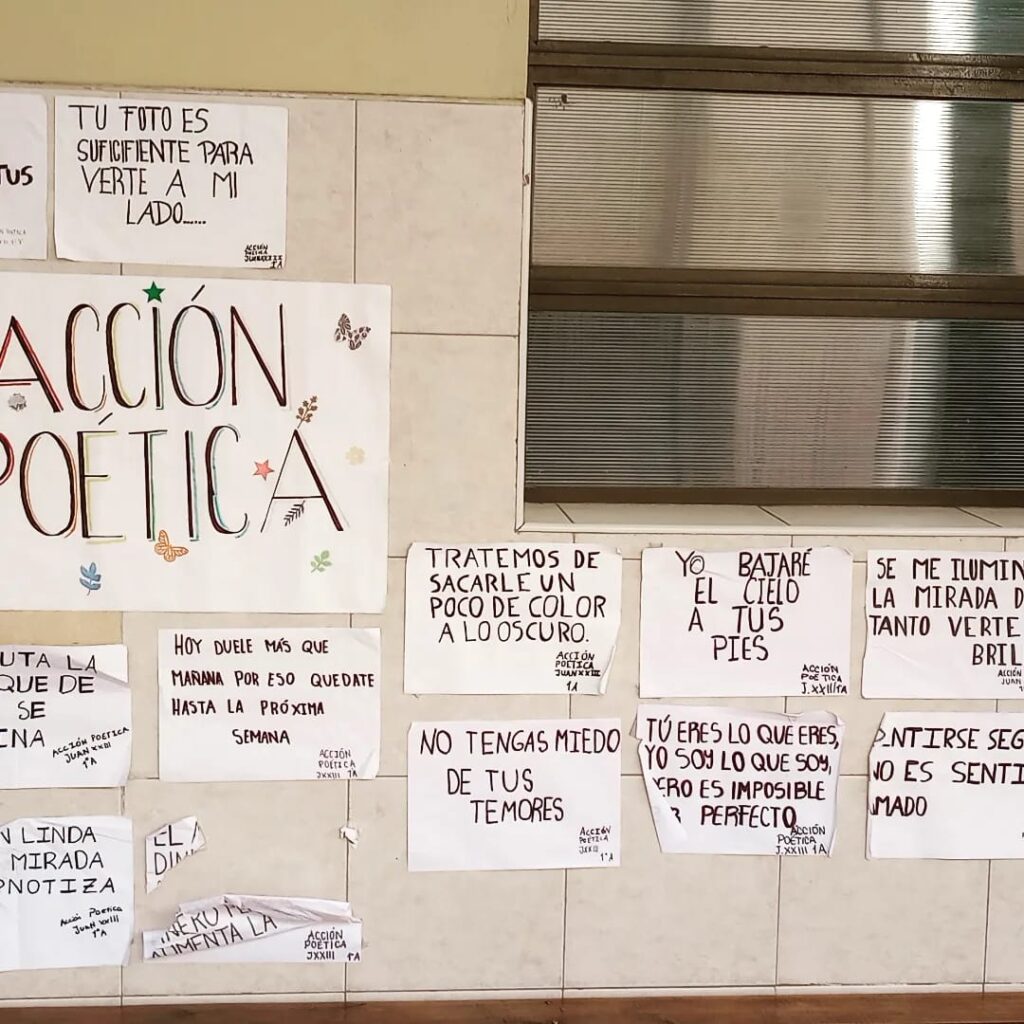 TUS
TU FOTO ES
SUFICIFIENTE PARA
VERTE A MI
LADO.....
ACCIÓN
POÉTICA
JUAN XXIII
1A
ACCIÓN
POÉTICA
TRATEMOS DE
SACARLE UN
POCO DE COLOR
A LO OSCURO.
ACCIÓN
POÉTICA
JUAN XXIII
1A
YO BAJARÉ
EL CIELO
A TUS
PIES
ACCIÓN
POÉTICA
J.XXIII/1A
SE ME ILUMIN
LA MIRADA D
TANTO VERTE
BRIL
ACCIÓN
JUAN
UTA LA
QUE DE
SE
INA
ACCIÓN POÉTICA
JUAN XXIII
1°A
HOY DUELE MÁS QUE
MAÑANA POR ESO QUEDATE
HASTA LA PRÓXIMA
SEMANA
ACCIÓN
POÉTICA
JXXIII 1A
NO TENGAS MIEDO
DE TUS
TEMORES
ACCIÓN
POÉTICA
JXXIII
1°A
TÚ ERES LO QUE ERES,
YO SOY LO QUE SOY,
PERO ES IMPOSIBLE
PERFECTO
ACCIÓN
POÉTICA
J.XXIII 1A
ENTIRSE SEG
NO ES SENTI
AMADO
N LINDA
MIRADA
PNOTIZA
Acción Poetica
Juan XXIII
1°A
EL
DIN
AUMENTA LA
ACCIÓN
POÉTICA
JXXIII 1°A